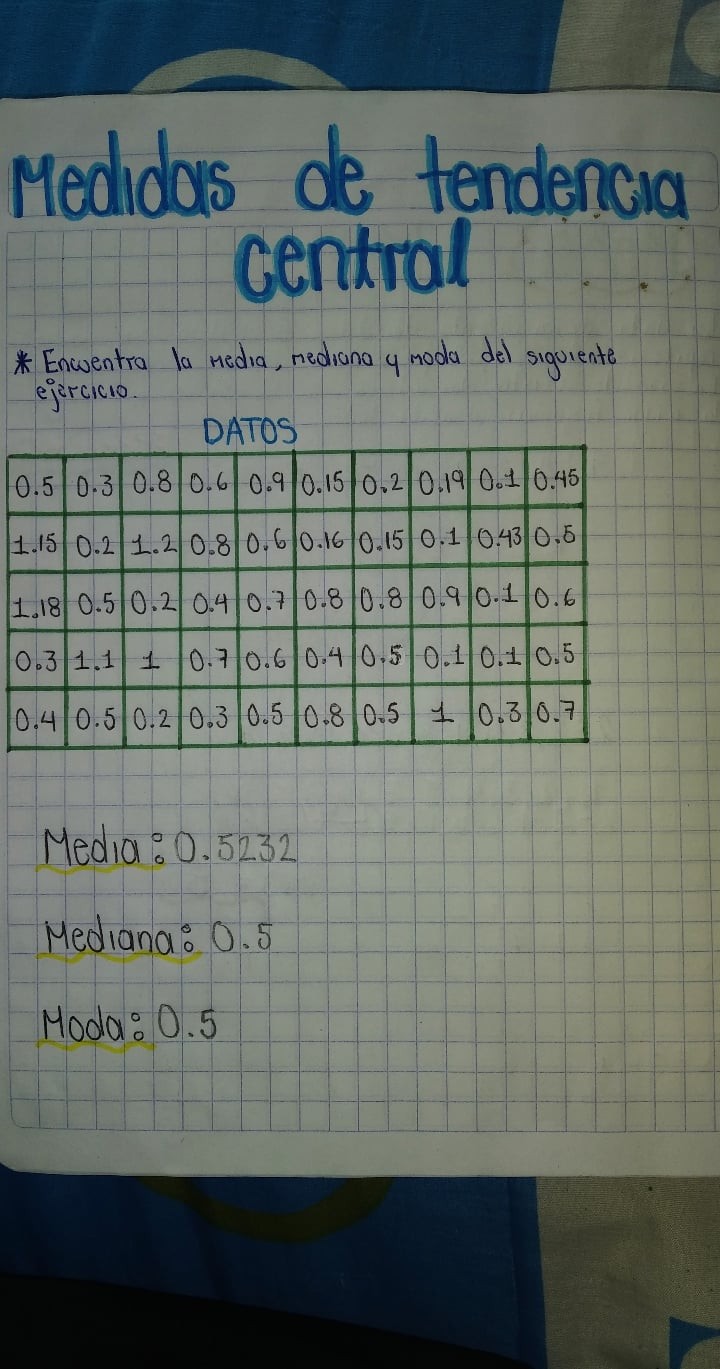 Medidas de tendencia
central
* Encuentra la media, mediana y moda del siguiente
ejercicio.
DATOS
0.5 0.3 0.8 0.6 0.9 0.15 0.2 0.19 0.1 0.45
1.15 0.2 1.2 0.8 0.6 0.16 0.15 0.1 0.43 0.5
1.18 0.5 0.2 0.4 0.7 0.8 0.8 0.9 0.1 0.6
0.3 1.1 1 0.7 0.6 0.4 0.5 0.1 0.1 0.5
0.4 0.5 0.2 0.3 0.5 0.8 0.5 1 0.3 0.7
Media: 0.5232
Mediana: 0.5
Moda: 0.5